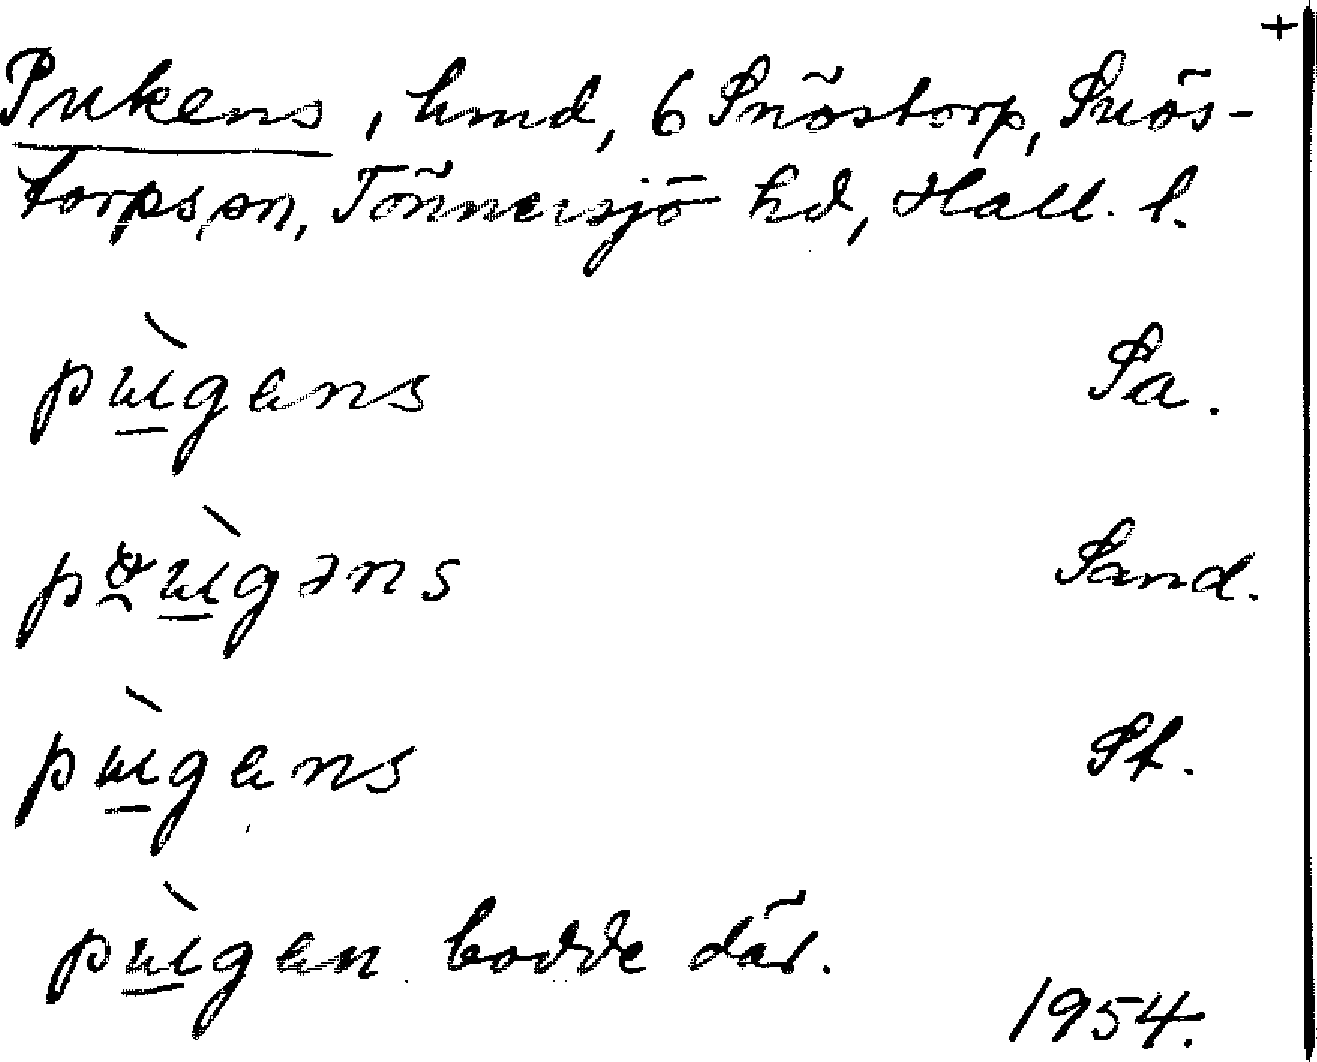 +
Pukens, hmd, 6 Snöstorp, Snös-
torps sn, Tönnersjö hd, Hall. l.
pùgens Sa.
pɵùgəns Sand.
pùgens St.
pùgen bodde där.
1954.